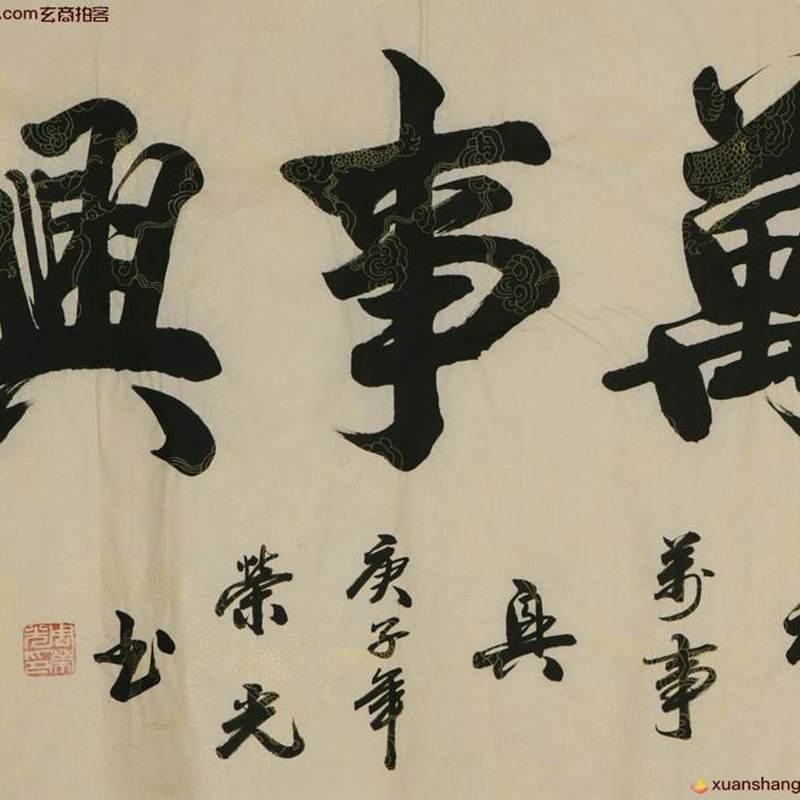 .com玄商拍客
萬事興
萬事
興
庚子年
榮光
书
xuanshang